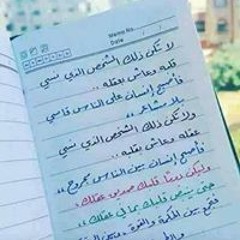 Memo No.
Date / /
لا تكن ذلك الشخص الذي نسي
قلبه وعاش بعقله ..
فأصبح إنسان على الناس قاسي
بلا مشاعر ..
ولا تكن ذلك الشخص الذي نسي
عقله وعاش بقلبه ..
فأصبح إنسان بين الناس مجروح ..
وليكن دينا قلبك صديق عقلك
حتى ينبض قلبك بما في عقلك ..
فتجمع بين الحكمة والقوة